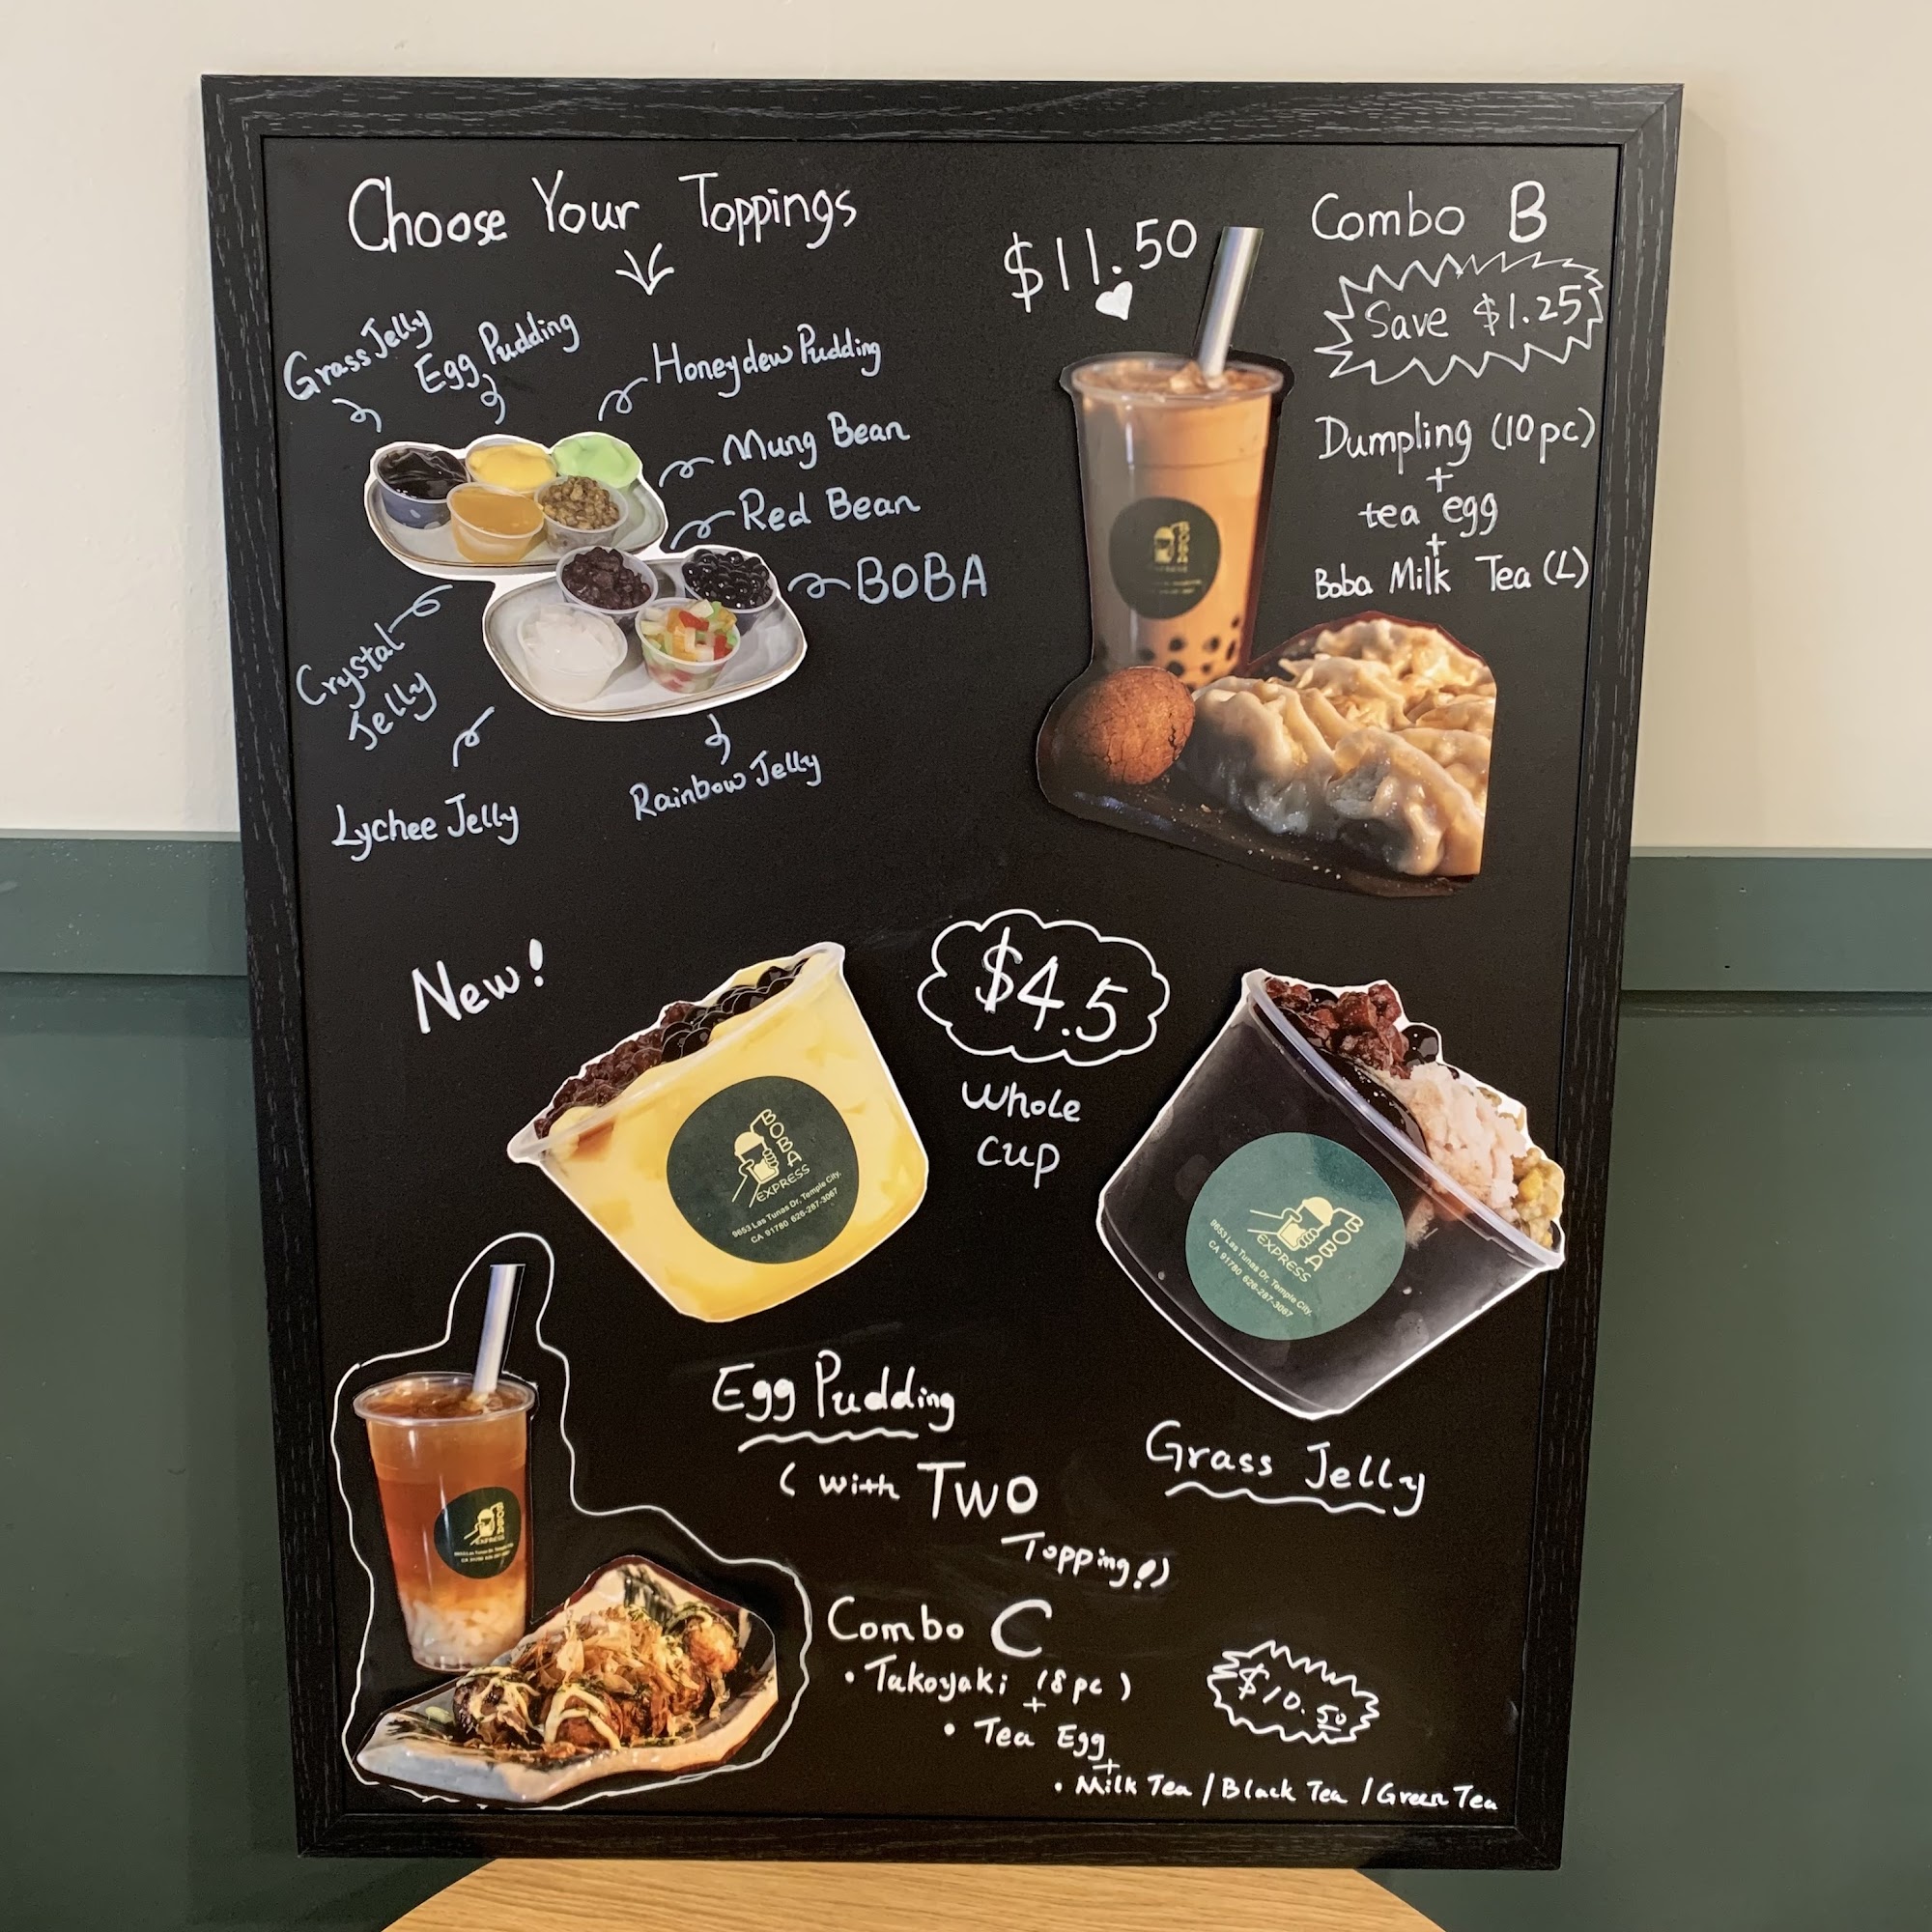 Choose Your Toppings
Grass Jelly
Egg Pudding
Honeydew Pudding
Mung Bean
Red Bean
BOBA
Crystal
Jelly
Lychee Jelly
Rainbow Jelly
$11.50
Combo B
Save $1.25
Dumpling (10pc)
+
tea egg
+
Boba Milk Tea (L)
BOBA
EXPRESS
New!
$4.5
Whole
Cup
BOBA
EXPRESS
9653 Las Tunas Dr, Temple City.
CA 91780 626-287-3067
BOBA
EXPRESS
9653 Las Tunas Dr, Temple City.
CA 91780 626-287-3067
Egg Pudding
(with TWO
Topping!)
Grass Jelly
BOBA
EXPRESS
9653 Las Tunas Dr, Temple City.
CA 91780 626-287-3067
Combo C
• Takoyaki (8pc)
+
• Tea Egg
+
• Milk Tea / Black Tea / Green Tea
$10.50